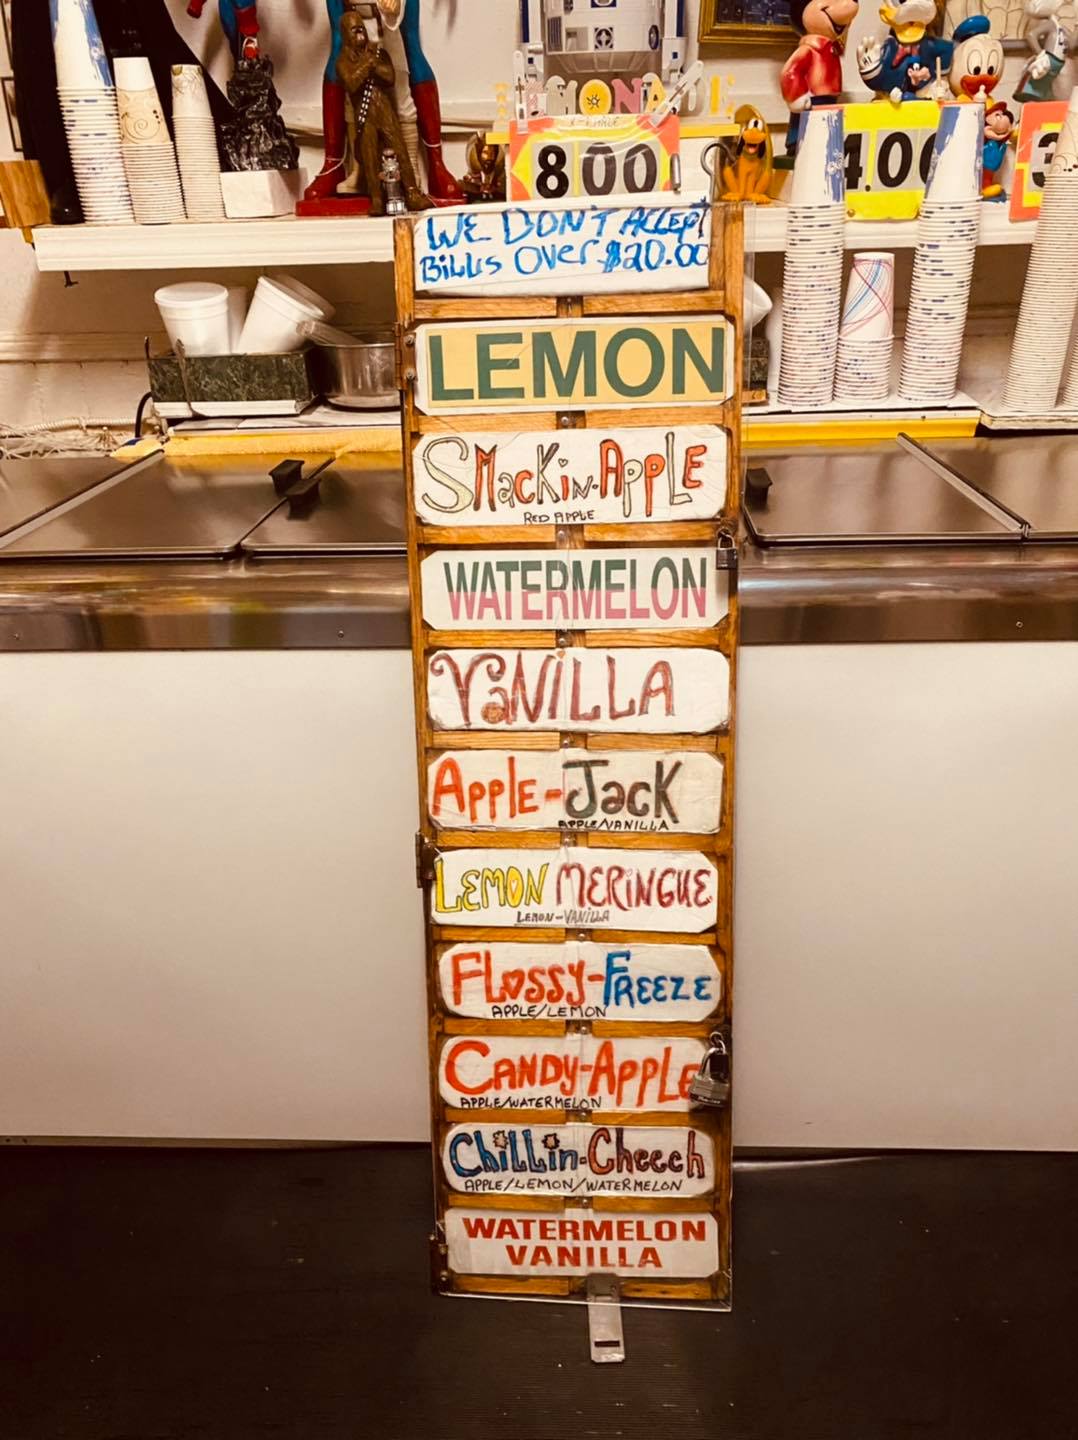 LEMONADE
800
4.00
3
WE DON'T ACCEPT
BILLS OVER $20.00
LEMON
SMacKiN-APPLE
RED APPLE
WATERMELON
VaNiLLA
APPLE-JacK
APPLE/VANILLA
LEMON MERiNGUE
LEMON-VANiLLA
FLOSSY-FREEZE
APPLE/LEMON
CANDY-APPLE
APPLE/WATERMELON
ChiLLin-Cheech
APPLE/LEMON/WATERMELON
WATERMELON
VANILLA